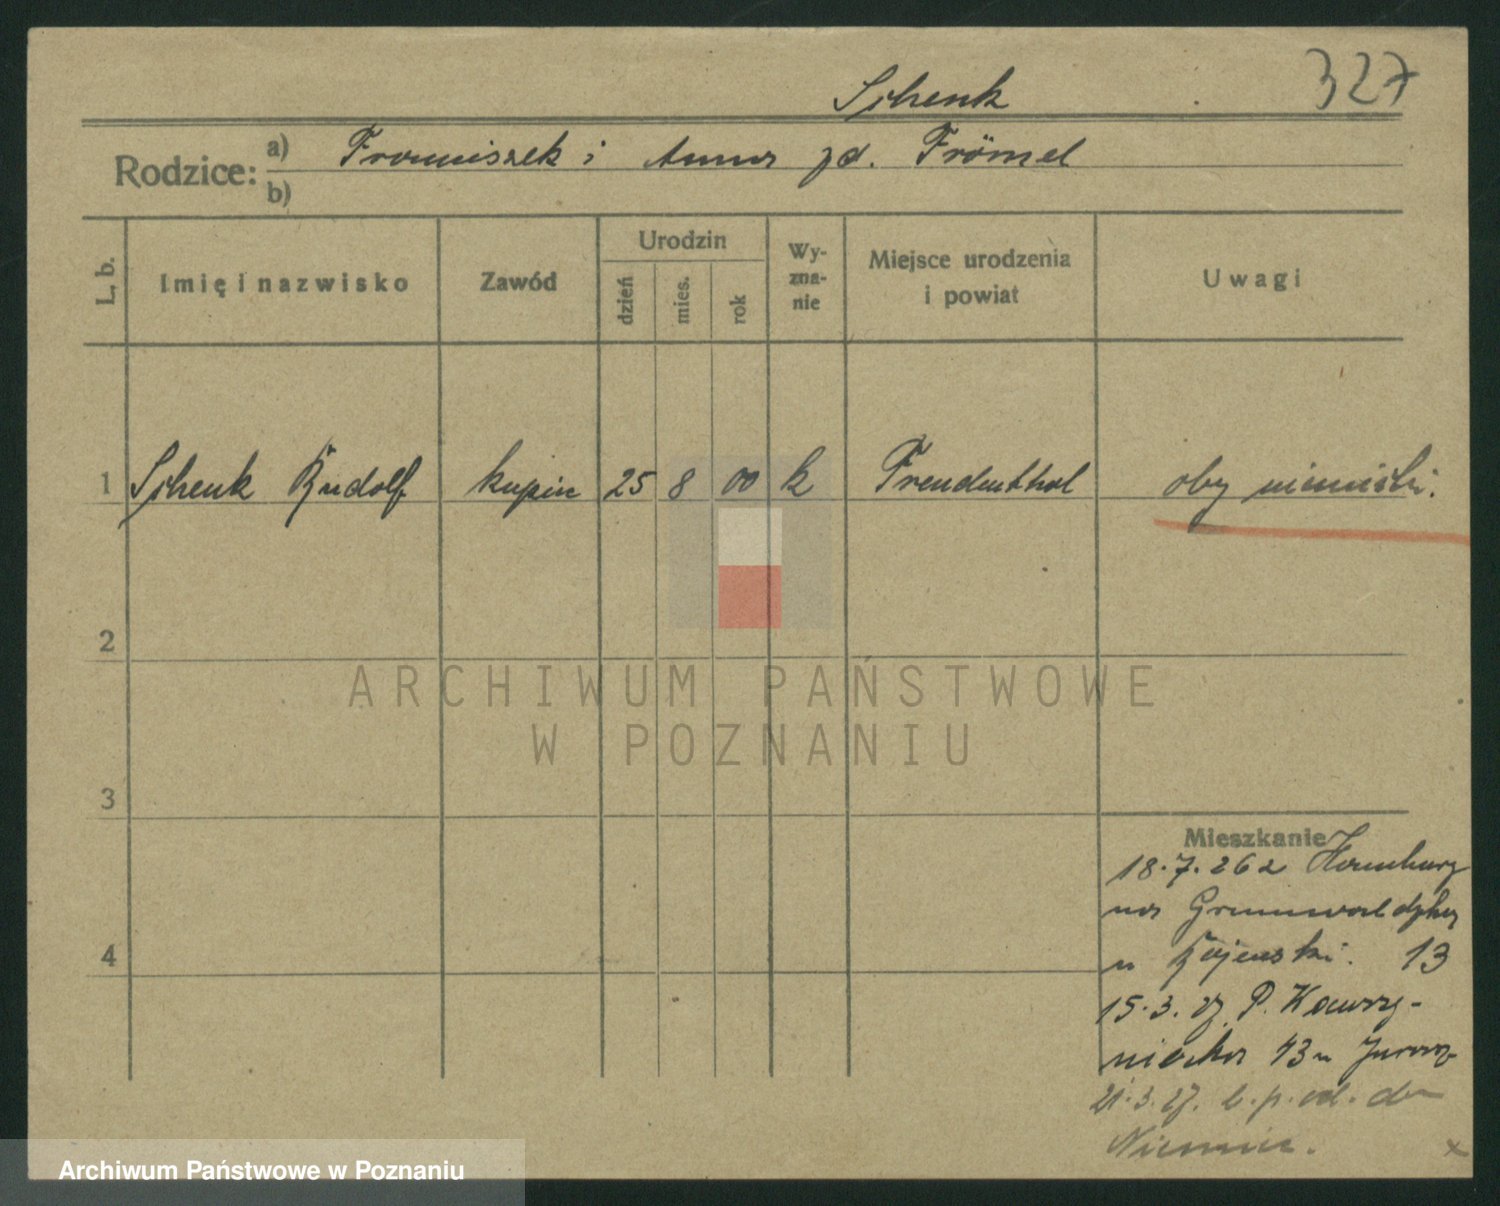 327
Schenk
Rodzice: a) Franciszek i Anna zd. Frömel
b)
L. b. Imię i nazwisko Zawód Urodzin dzień mies. rok Wy-zna-nie Miejsce urodzenia i powiat Uwagi
1 Schenk Rudolf kupiec 25 8 00 k Freudenthal oby niemiecki.
2
ARCHIWUM PAŃSTWOWE
W POZNANIU
3
Mieszkanie
18.7.26 z Hamburg
na Grunwaldzka
u Kojewski. 13
15.3.27 P. Wawrzy-
niaka 43 u
4
21.3.27. b. p. od. do
Niemiec.
x
Archiwum Państwowe w Poznaniu